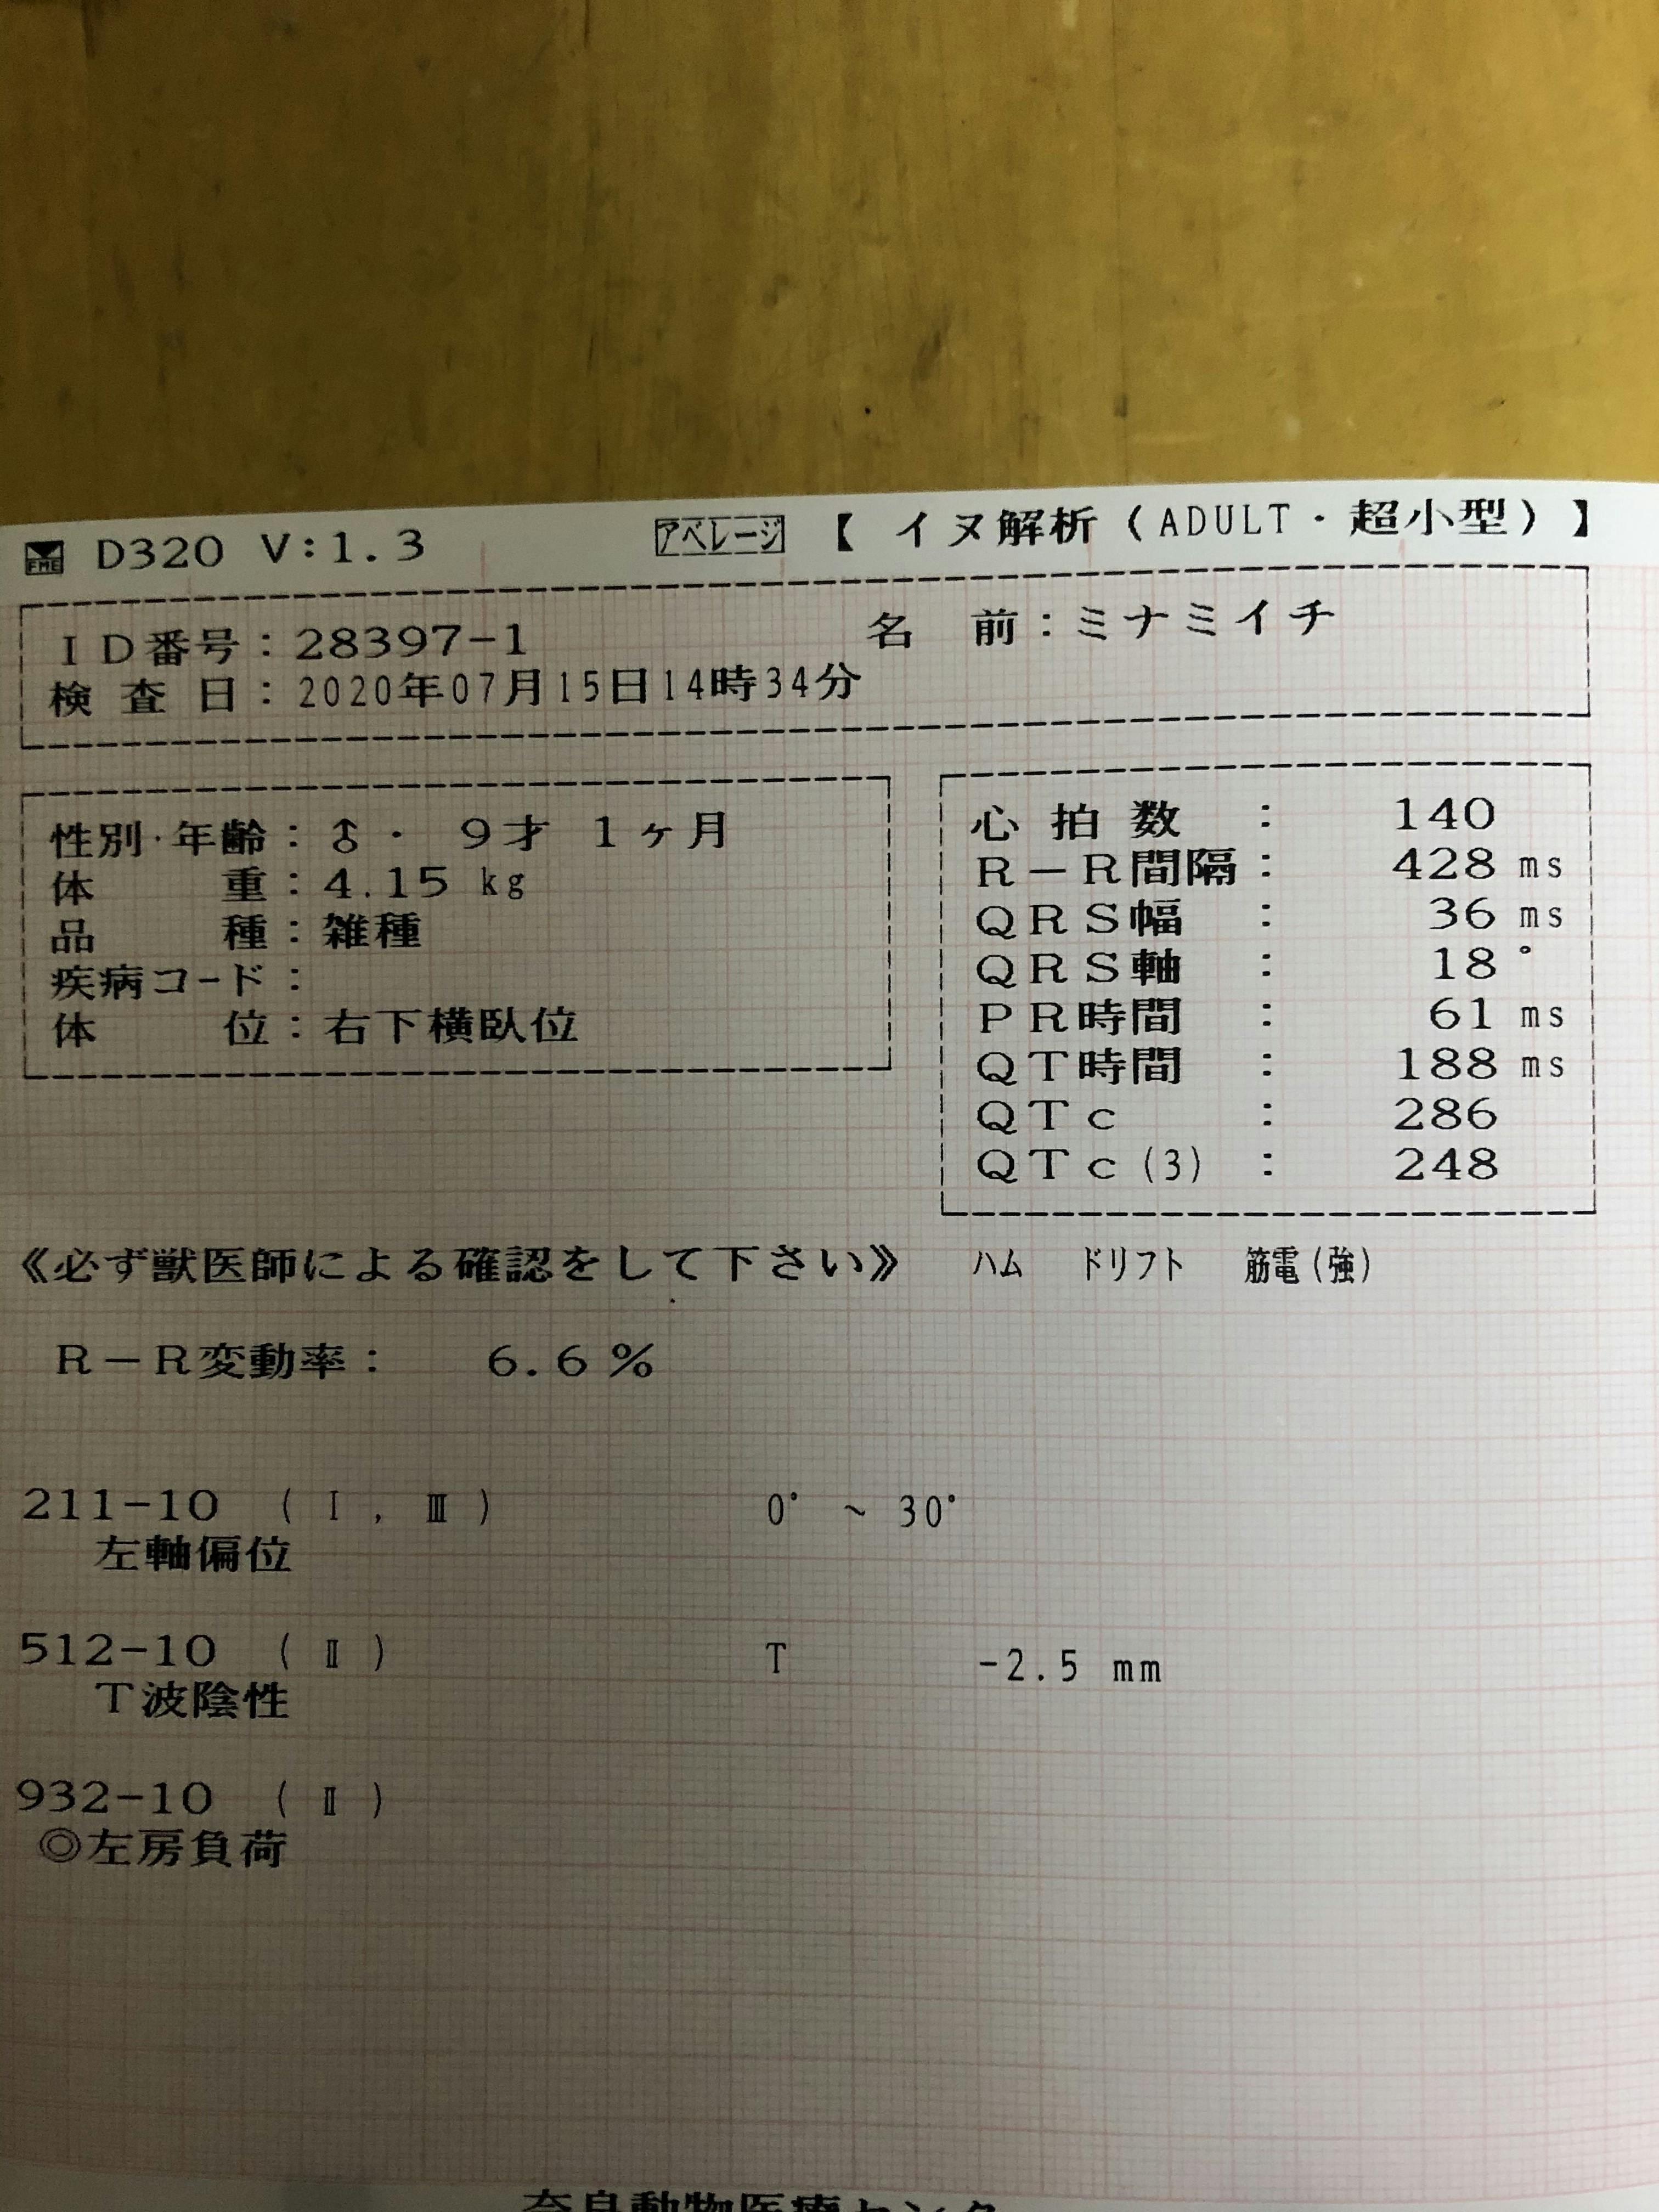 FME D320 V:1.3 アベレージ 【 イヌ解析(ADULT・超小型) 】
ID番号:28397-1 名 前:ミナミイチ
検 査 日:2020年07月15日14時34分
性別·年齢:♂・ 9才 1ヶ月
体 重:4.15 kg
品 種:雑種
疾病コード:
体 位:右下横臥位
心 拍 数 : 140
R-R間隔: 428 ms
QRS幅 : 36 ms
QRS軸 : 18 °
PR時間 : 61 ms
QT時間 : 188 ms
QTc : 286
QTc(3) : 248
《必ず獣医師による確認をして下さい》 ハム ドリフト 筋電(強)
R-R変動率: 6.6%
211-10 (Ⅰ,Ⅲ) 0° ~ 30°
左軸偏位
512-10 (Ⅱ) T -2.5 mm
T波陰性
932-10 (Ⅱ)
◎左房負荷
奈良動物医療センタ